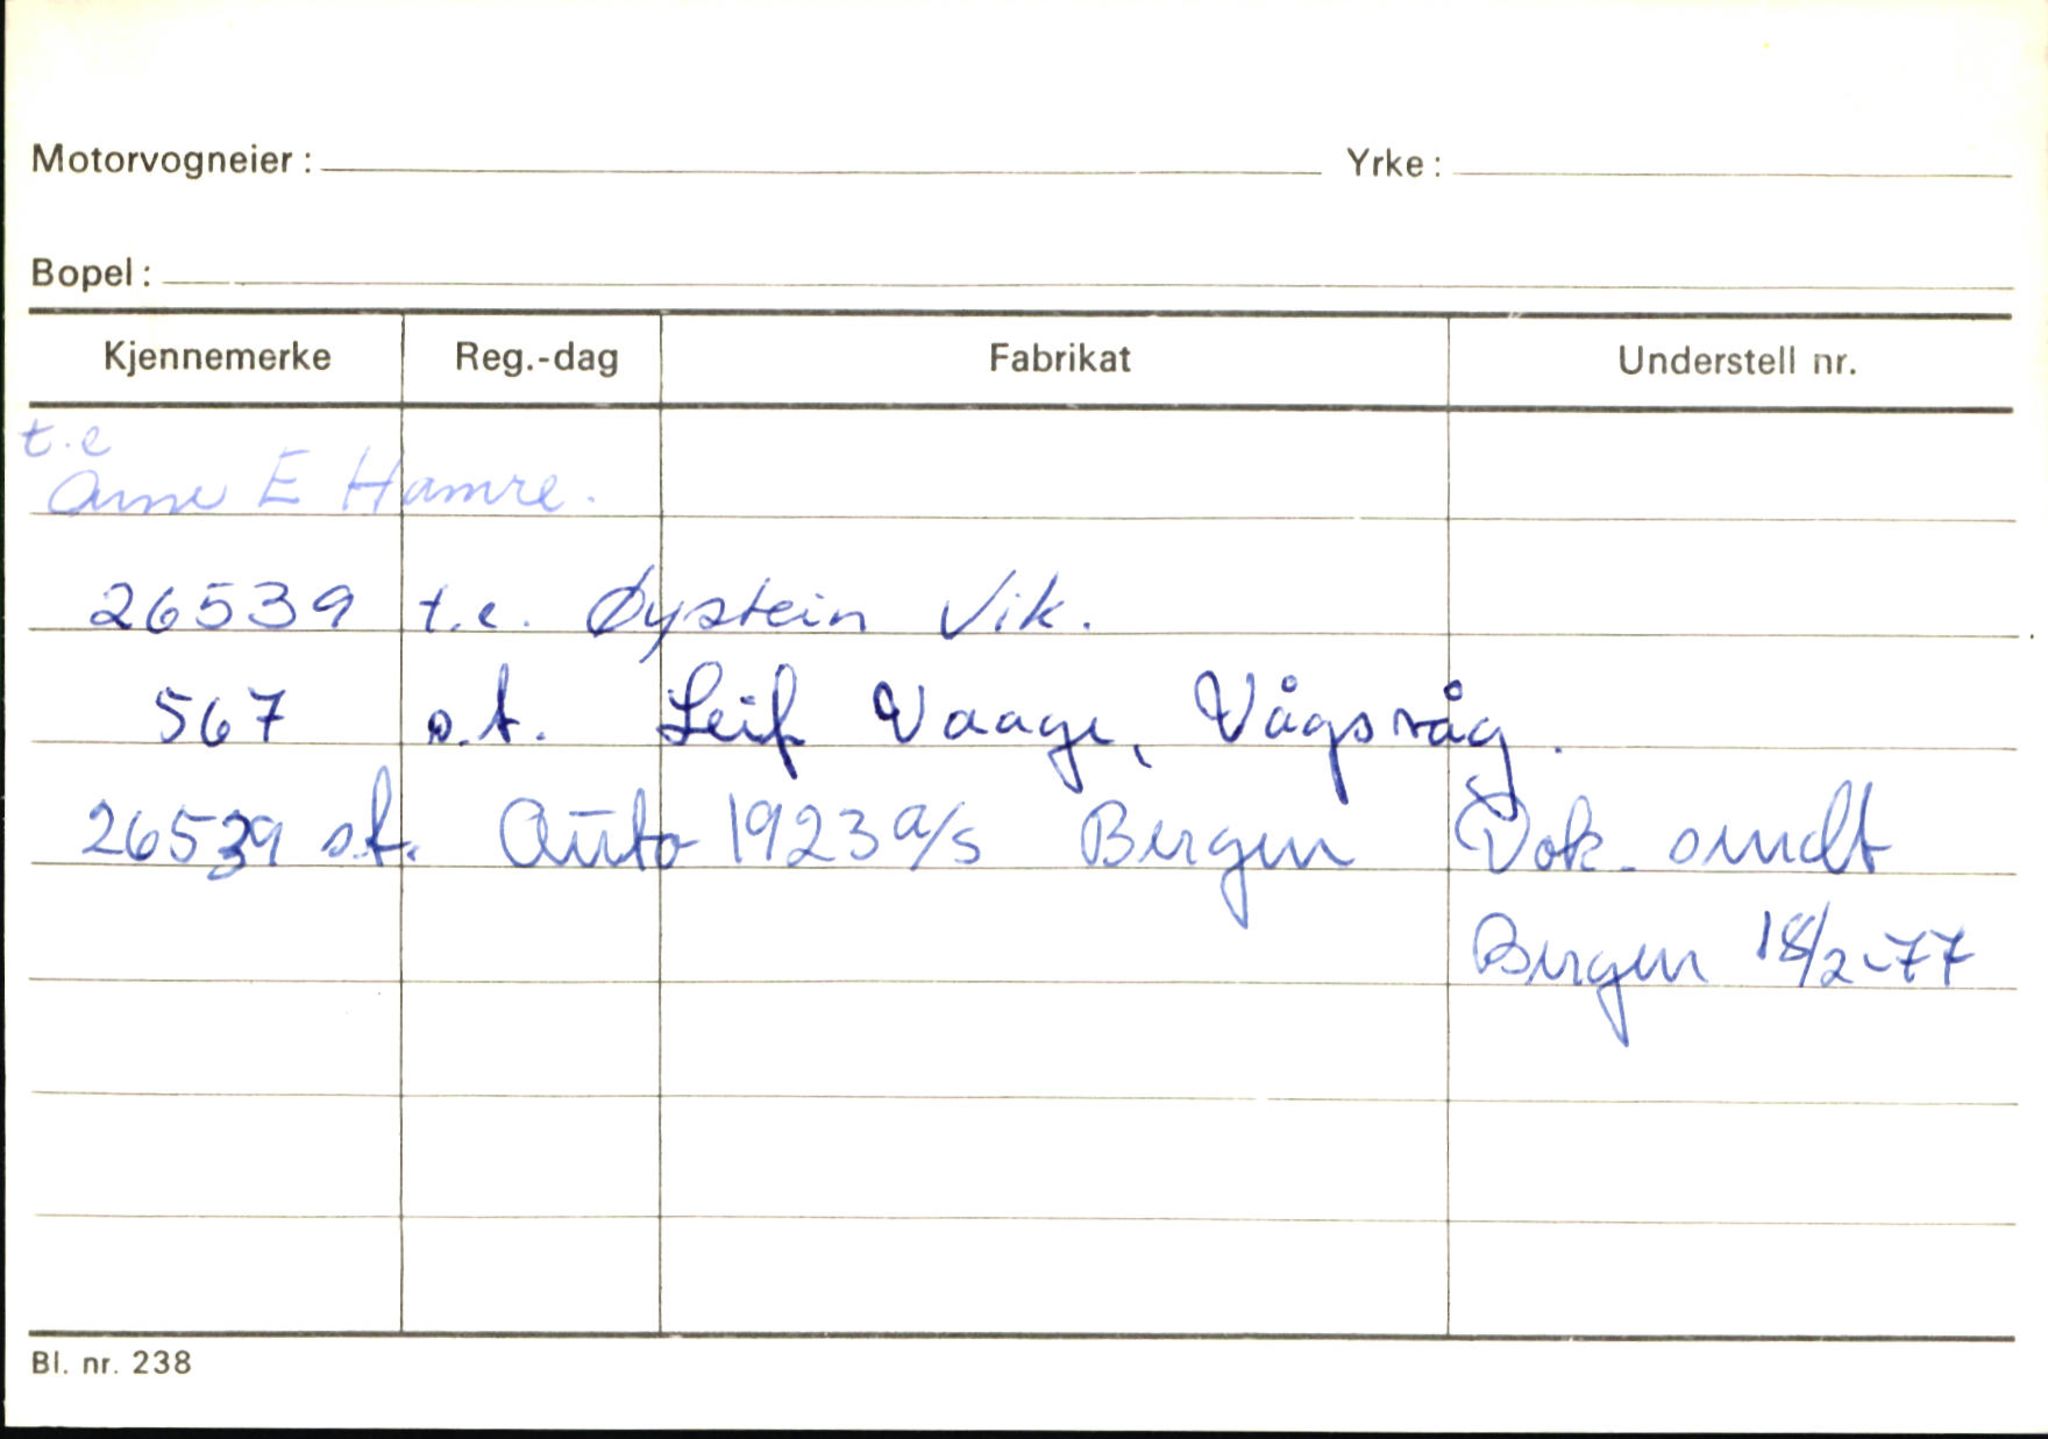 Motorvogneier: Yrke:
Bopel:
Kjennemerke Reg.-dag Fabrikat Understell nr.
t.e
Arne E Hamre.
26539 t.e. Øystein Vik.
567 s.t. Leif Vaage, Vågsvåg.
26539 s.t. Auto 1923 a/s Bergen Dok. sendt
Bergen 18/2-77
Bl. nr. 238